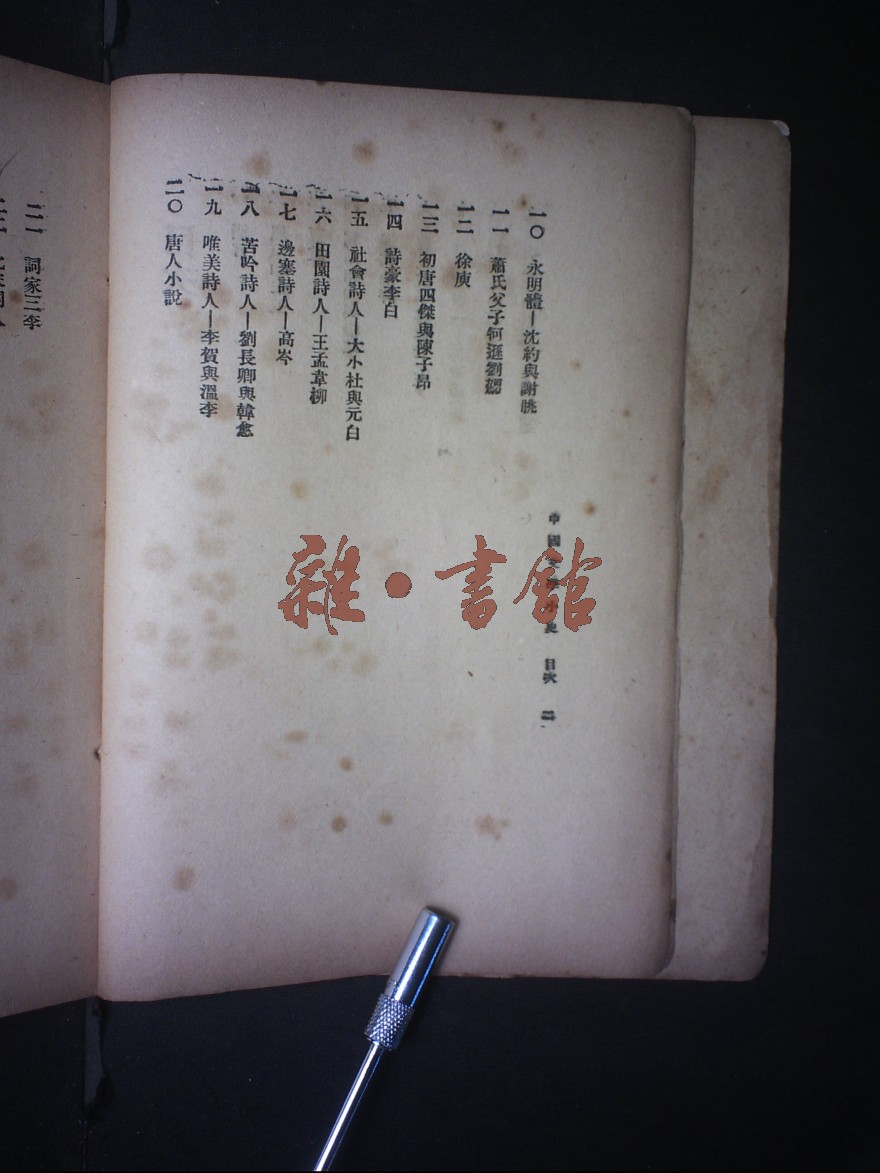 中國文學小史 目次 二
一〇 永明體—沈約與謝朓
一一 蕭氏父子何遜劉勰
一二 徐庾
一三 初唐四傑與陳子昂
一四 詩豪李白
一五 社會詩人—大小杜與元白
一六 田園詩人—王孟韋柳
一七 邊塞詩人—高岑
一八 苦吟詩人—劉長卿與韓愈
一九 唯美詩人—李賀與溫李
二〇 唐人小說
二一 詞家三李
雜·書館